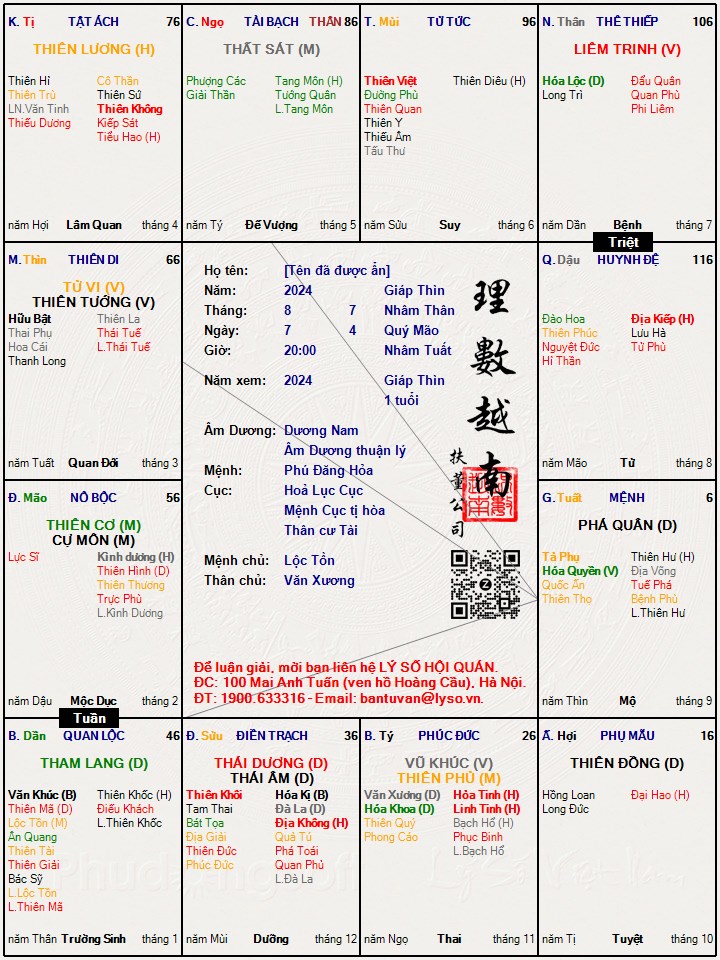 K. Tị TẬT ÁCH 76
THIÊN LƯƠNG (H)
Thiên Hỉ Cô Thần
Thiên Trù Thiên Sứ
LN.Văn Tinh Thiên Không
Thiếu Dương Kiếp Sát
Tiểu Hao (H)
năm Hợi Lâm Quan tháng 4
C. Ngọ TÀI BẠCH THÂN 86
THẤT SÁT (M)
Phượng Các Tang Môn (H)
Giải Thần Tướng Quân
L.Tang Môn
năm Tý Đế Vượng tháng 5
T. Mùi TỬ TỨC 96
Thiên Việt Thiên Diêu (H)
Đường Phù
Thiên Quan
Thiên Y
Thiếu Âm
Tấu Thư
năm Sửu Suy tháng 6
N. Thân THÊ THIẾP 106
LIÊM TRINH (V)
Hóa Lộc (D) Đẩu Quân
Long Trì Quan Phù
Phi Liêm
năm Dần Bệnh tháng 7
Triệt
M. Thìn THIÊN DI 66
TỬ VI (V)
THIÊN TƯỚNG (V)
Hữu Bật Thiên La
Thai Phụ Thái Tuế
Hoa Cái L.Thái Tuế
Thanh Long
năm Tuất Quan Đới tháng 3
Họ tên: [Tên đã được ẩn]
Năm: 2024 Giáp Thìn
Tháng: 8 7 Nhâm Thân
Ngày: 7 4 Quý Mão
Giờ: 20:00 Nhâm Tuất
Năm xem: 2024 Giáp Thìn
1 tuổi
Âm Dương: Dương Nam
Âm Dương thuận lý
Mệnh: Phú Đăng Hỏa
Cục: Hoả Lục Cục
Mệnh Cục tị hòa
Thân cư Tài
Mệnh chủ: Lộc Tồn
Thân chủ: Văn Xương
理數越南
扶董公司
Z
Để luận giải, mời bạn liên hệ LÝ SỐ HỘI QUÁN.
ĐC: 100 Mai Anh Tuấn (ven hồ Hoàng Cầu), Hà Nội.
ĐT: 1900.633316 - Email: bantuvan@lyso.vn.
Q. Dậu HUYNH ĐỆ 116
Đào Hoa Địa Kiếp (H)
Thiên Phúc Lưu Hà
Nguyệt Đức Tử Phù
Hỉ Thần
năm Mão Tử tháng 8
Đ. Mão NÔ BỘC 56
THIÊN CƠ (M)
CỰ MÔN (M)
Lực Sĩ Kình dương (H)
Thiên Hình (D)
Thiên Thương
Trực Phù
L.Kình Dương
năm Dậu Mộc Dục tháng 2
Tuần
G. Tuất MỆNH 6
PHÁ QUÂN (D)
Tả Phụ Thiên Hư (H)
Hóa Quyền (V) Địa Võng
Quốc Ấn Tuế Phá
Thiên Thọ Bệnh Phù
L.Thiên Hư
năm Thìn Mộ tháng 9
B. Dần QUAN LỘC 46
THAM LANG (D)
Văn Khúc (B) Thiên Khốc (H)
Thiên Mã (D) Điếu Khách
Lộc Tồn (M) L.Thiên Khốc
Ân Quang
Thiên Tài
Thiên Giải
Bác Sỹ
L.Lộc Tồn
L.Thiên Mã
năm Thân Trường Sinh tháng 1
Đ. Sửu ĐIỀN TRẠCH 36
THÁI DƯƠNG (D)
THÁI ÂM (D)
Thiên Khôi Hóa Kị (B)
Tam Thai Đà La (D)
Bát Tọa Địa Không (H)
Địa Giải Quả Tú
Thiên Đức Phá Toái
Phúc Đức Quan Phủ
L.Đà La
năm Mùi Dưỡng tháng 12
B. Tý PHÚC ĐỨC 26
VŨ KHÚC (V)
THIÊN PHỦ (M)
Văn Xương (D) Hỏa Tinh (H)
Hóa Khoa (D) Linh Tinh (H)
Thiên Quý Bạch Hổ (H)
Phong Cáo Phục Binh
L.Bạch Hổ
năm Ngọ Thai tháng 11
Ấ. Hợi PHỤ MẪU 16
THIÊN ĐỒNG (D)
Hồng Loan Đại Hao (H)
Long Đức
năm Tị Tuyệt tháng 10